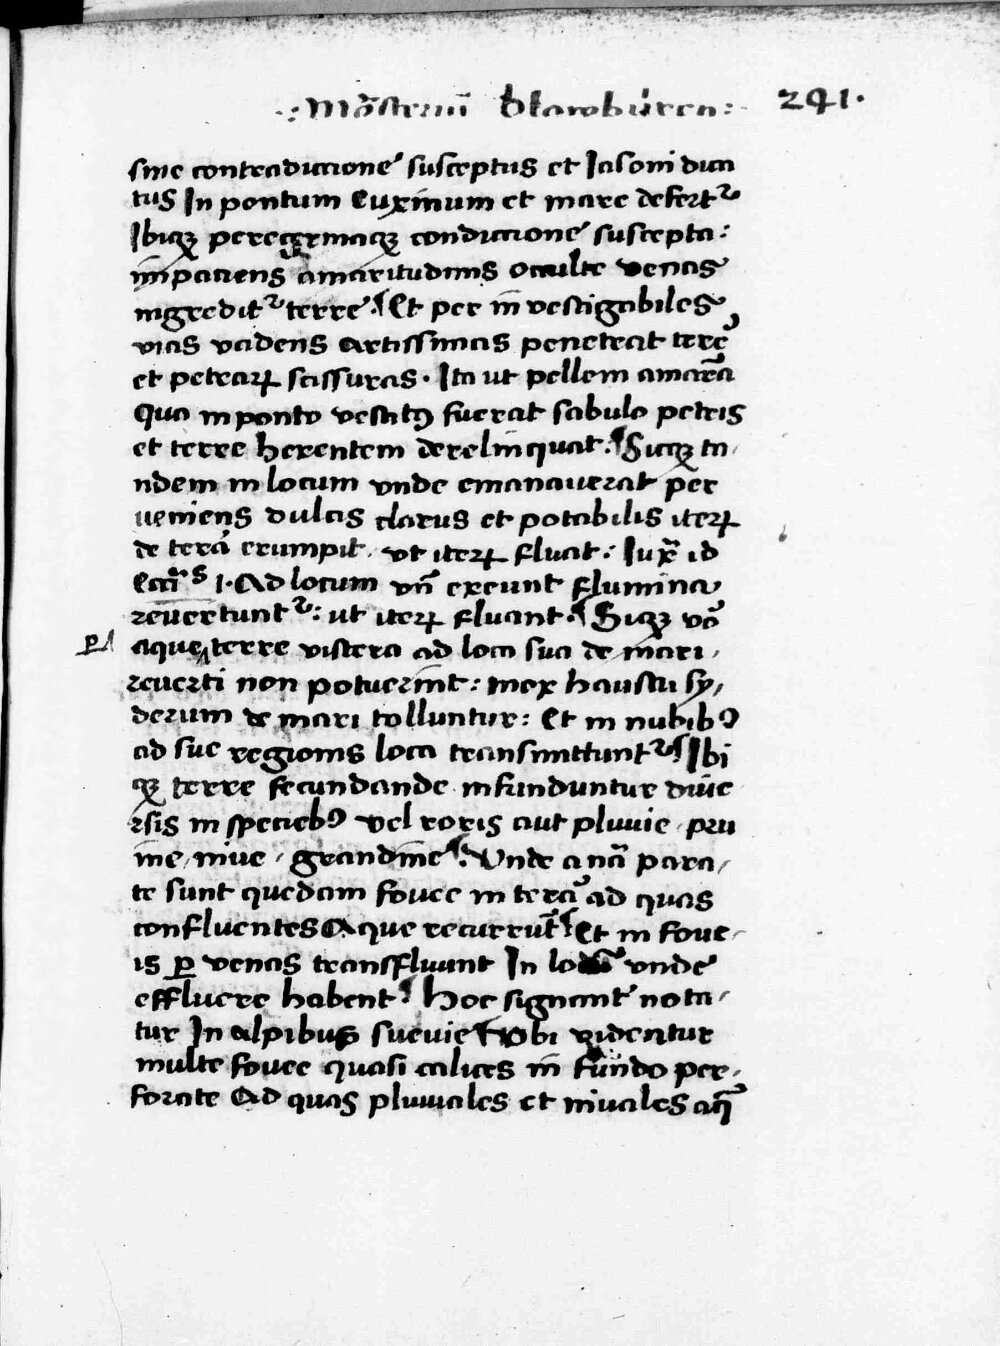 .: Mo᷑steriū blawbúren :. 241.
sine contradiccione susceptus et Iasoni dica
tus In pontum Euxinum et mare defertᷣ
Ibiqꝫ peregrinaqꝫ condiccione suscepta :
impaciens amaritudinis occulte venas
ingreditᷣ terre . Et per inuestigabiles
vias vadens artissimas penetrat tere᷑
et petraꝝ scissuras . Ita ut pellem amarā
qua in ponto vestitꝰ fuerat sabulo petris
et terre herentem derelinquat . Sicqꝫ ta,
ndem in locum vnde emanauerat per
ueniens dulcis clarus et potabilis iteꝝ
de tera᷑ erumpit . vt iteꝝ fluat : Iuxͣ id
Eccͣͥs 1. Ad locum vn̄ exeunt flumina
reuertuntᷣ : ut iteꝝ fluant . Siqꝫ vo᷑
ꝑ aque terre viscera ad loca sua de mari,
reuerti non potuerint : mox haustu sy,
derum de mari tolluntur : Et in nubibꝰ
ad sue regionis loca transmittuntᷣ Ibi
qꝫ terre fecundande infunduntur diue
rsis in speciebꝰ vel roris aut pluuie . pru
ine, niue . grandine . Vnde a na᷑ para,
te sunt quedam fouee in tera᷑ ad quas
confluentes Aque recurrūt Et in foue,
is ꝑ venas transfluunt In vnde
effluere habent . Hoc signant᷑ nota,
tur In alpibus sueuie Vbi videntur
multe fouee quasi calices in fundo per,
forate Ad quas pluuiales et niuales aq᷑